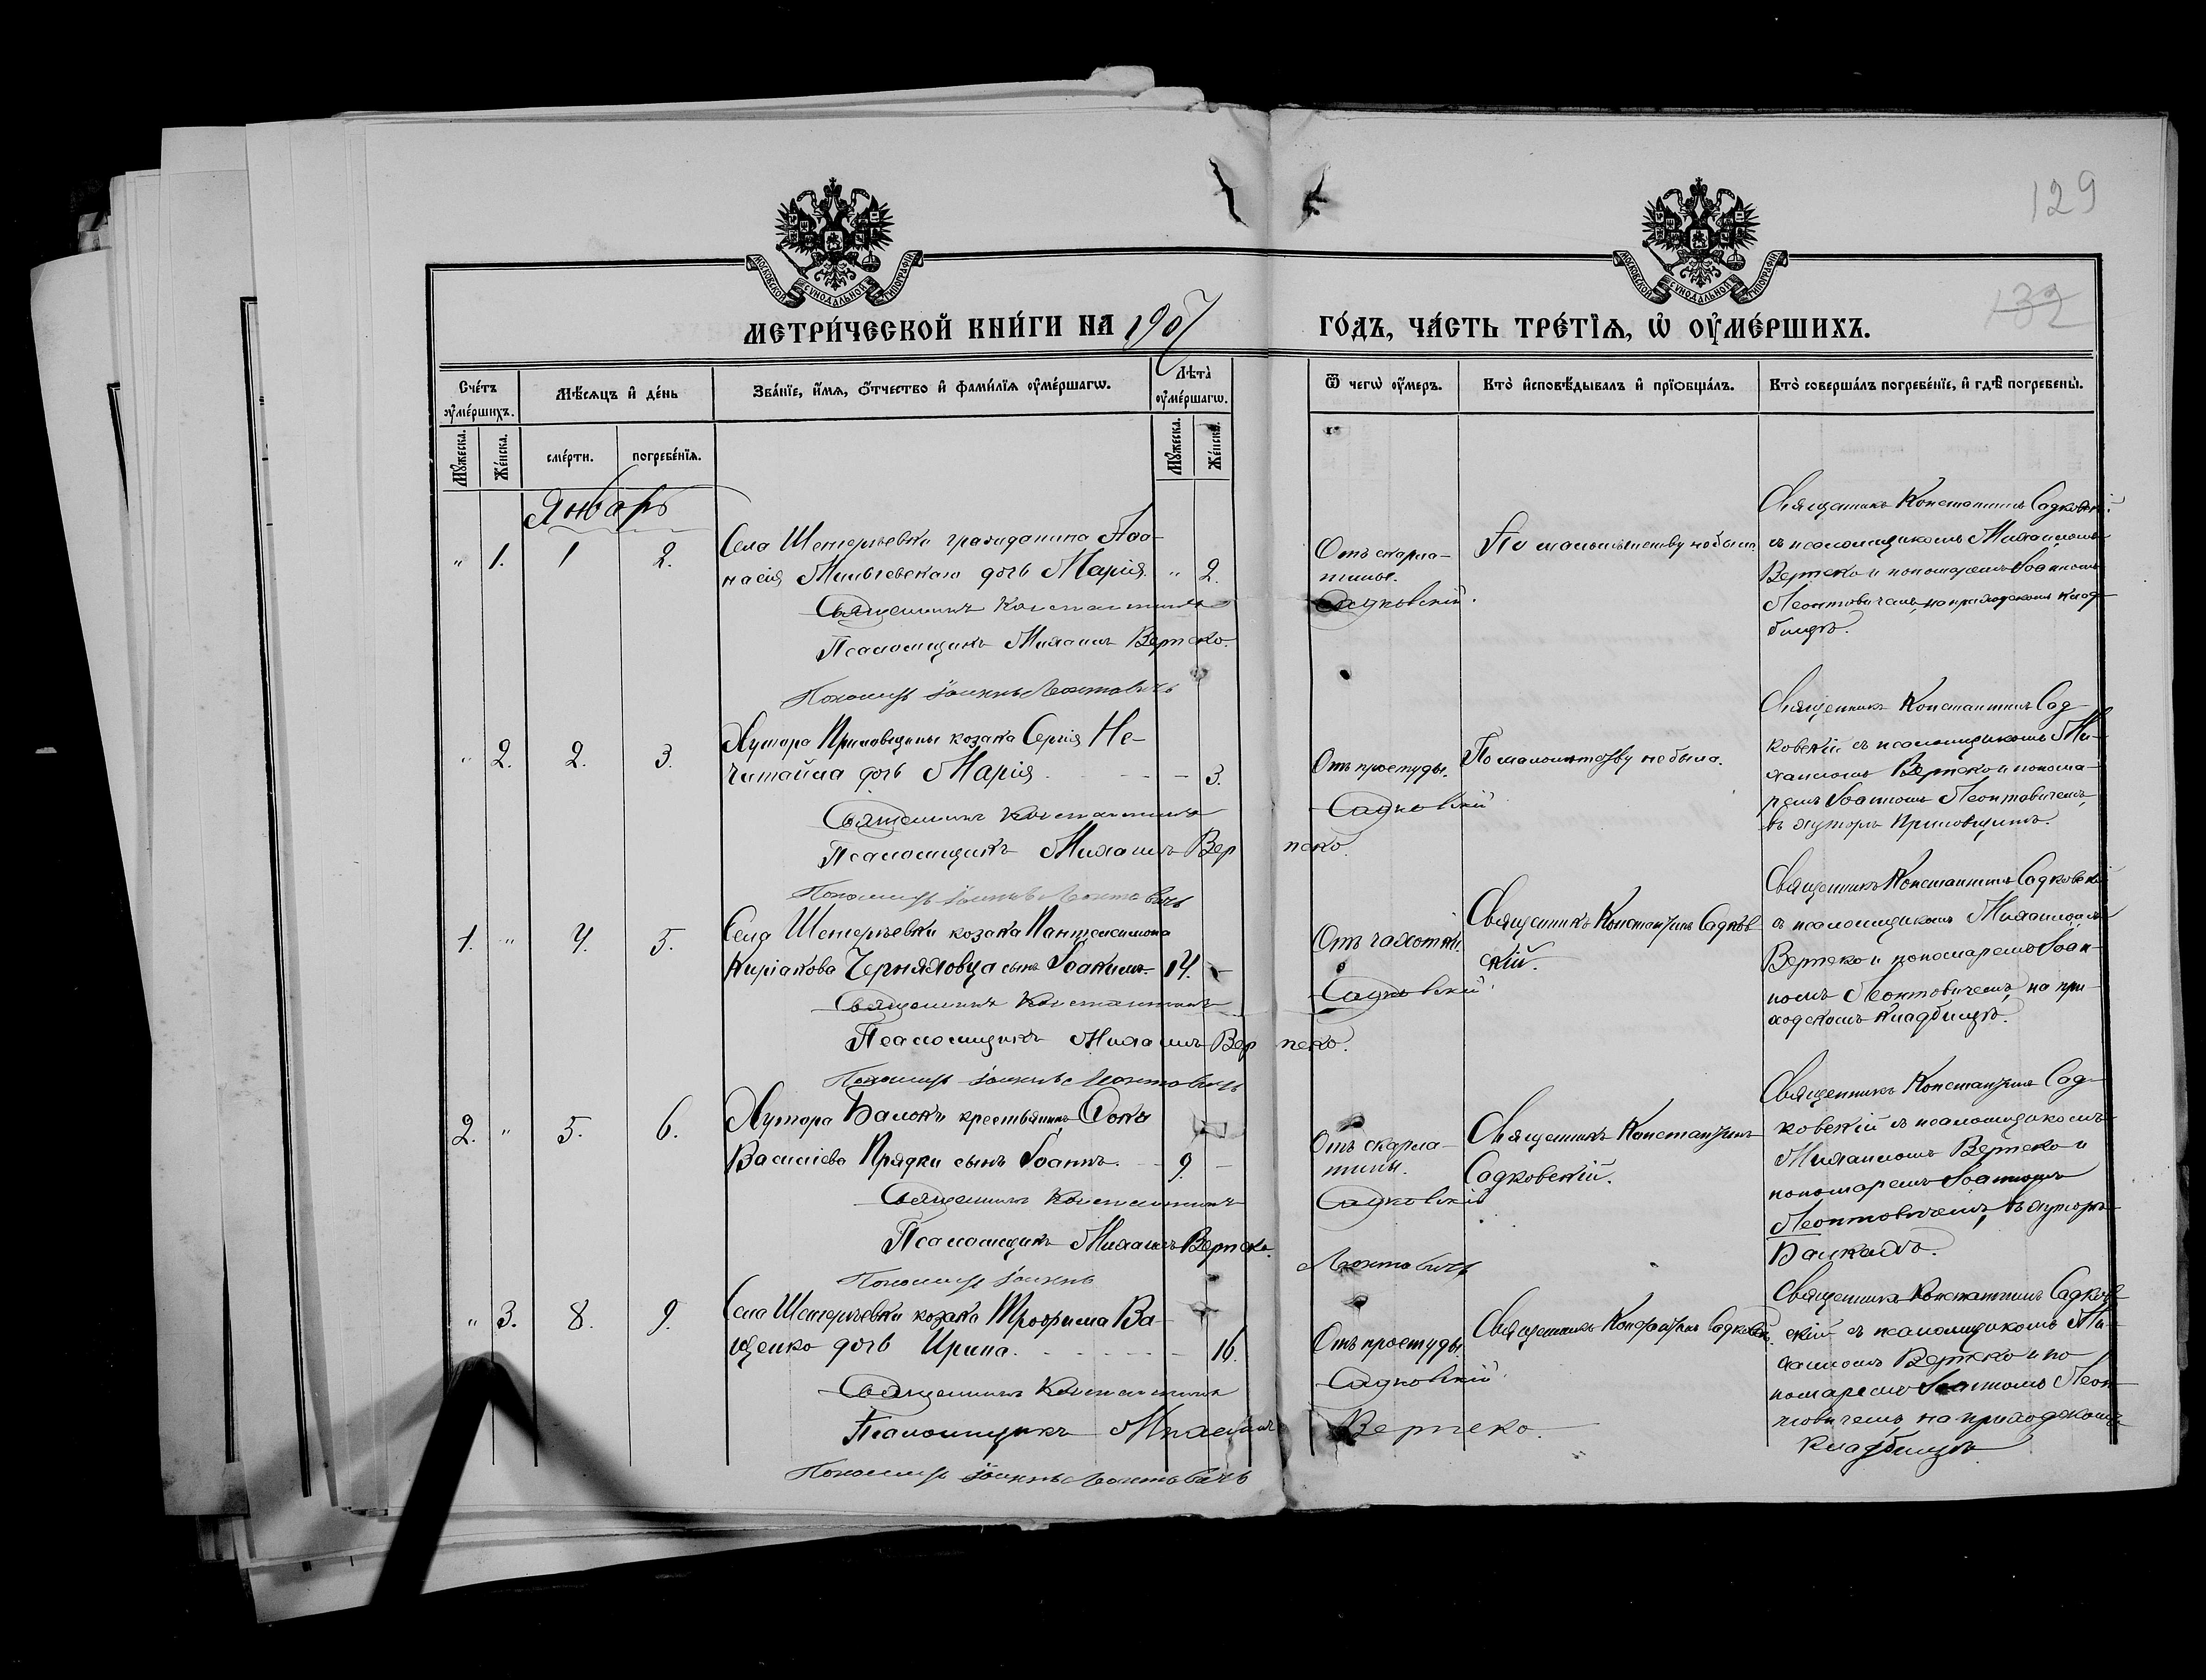 129
132
МОСКОВСКОЙ СѴНОДАЛЬНОЙ ТИПОГРАФІИ
МОСКОВСКОЙ СѴНОДАЛЬНОЙ ТИПОГРАФІИ
МЕТРИ́ЧЕСКОЙ КНИ́ГИ НА 1907 ГО́ДЪ, ЧА́СТЬ ТРЕ́ТЇѦ, Ѡ҆ ОУ҆МЕ́РШИХЪ.
Сче́тъ оу҆ме́ршихъ.
Мѣ́сѧцъ и҆ де́нь
Зва́нїе, и҆́мѧ, ѻ҆́тчество и҆ фами́лїѧ оу҆ме́ршагѡ.
Лѣ́та̀ оу҆ме́ршагѡ.
Ѿ чегѡ̀ оу҆́меръ.
Кто̀ и҆сповѣ́дывалъ и҆ прїѡбща́лъ.
Кто̀ соверша́лъ погребе́нїе, и҆ гдѣ̀ погребены̀.
Мꙋ́жеска.
Же́нска.
сме́рти.
погребе́нїѧ.
Мꙋ́жеска.
Же́нска.
Январь
" 1. 1 2.
Села Шетерьевки гражданина Аѳа-
насія дочь Марія. " 2.
Священникъ Константинъ
Псаломщикъ Михаилъ Вертеко.
Пономарь Іоаннъ Леонтовичъ
Отъ скарла-
тины.
Садковскій.
По малолѣтству не была.
Священникъ Константинъ Садковскій
съ псаломщикомъ Михаиломъ
Вертеко и пономаремъ Іоанномъ
Леонтовичемъ, на приходскомъ клад-
бищѣ.
" 2. 2. 3.
Хутора козака Сергія Не-
читайла дочь Марія - 3.
Священникъ Константинъ
Псаломщикъ Михаилъ Вертеко.
Пономарь Іоаннъ Леонтовичъ
Отъ простуды.
Садковскій
По малолѣтству не была.
Священникъ Константинъ Сад-
ковскій съ псаломщикомъ Ми-
хаиломъ Вертеко и понома-
ремъ Іоанномъ Леонтовичемъ,
въ хуторѣ
1. " 4. 5.
Села Шетерьевки козака Пантелеимона
Киріакова Черняховца сынъ Іоакимъ 14. -
Священникъ Константинъ
Псаломщикъ Михаилъ Вертеко.
Пономарь Іоаннъ Леонтовичъ
Отъ чахотки.
Садковскій
Священникъ Константинъ Садков-
скій.
Священникъ Константинъ Садковскій
съ псаломщикомъ Михаиломъ
Вертеко и пономаремъ Іоан-
номъ Леонтовичемъ, на при-
ходскомъ кладбищѣ.
2. " 5. 6.
Хутора крестьянина Ѳомы
Василіева Прядки сынъ Іоаннъ. 9. -
Священникъ Константинъ
Псаломщикъ Михаилъ Вертеко.
Пономарь Іоаннъ Леонтовичъ
Отъ скарла-
тины.
Садковскій
Священникъ Константинъ
Садковскій.
Священникъ Константинъ Сад-
ковскій съ псаломщикомъ
Михаиломъ Вертеко и
пономаремъ Іоанномъ
Леонтовичемъ, въ хуторѣ
" 3. 8. 9.
Села Шетерьевки козака Трофима Ва-
щенко дочь Ирина. 16.
Священникъ Константинъ
Псаломщикъ Михаилъ Вертеко.
Пономарь Іоаннъ Леонтовичъ
Отъ простуды.
Садковскій
Священникъ Константинъ Садковскій.
Священникъ Константинъ Садков-
скій съ псаломщикомъ Ми-
хаиломъ Вертеко и по-
номаремъ Іоанномъ Леон-
товичемъ, на приходскомъ
кладбищѣ